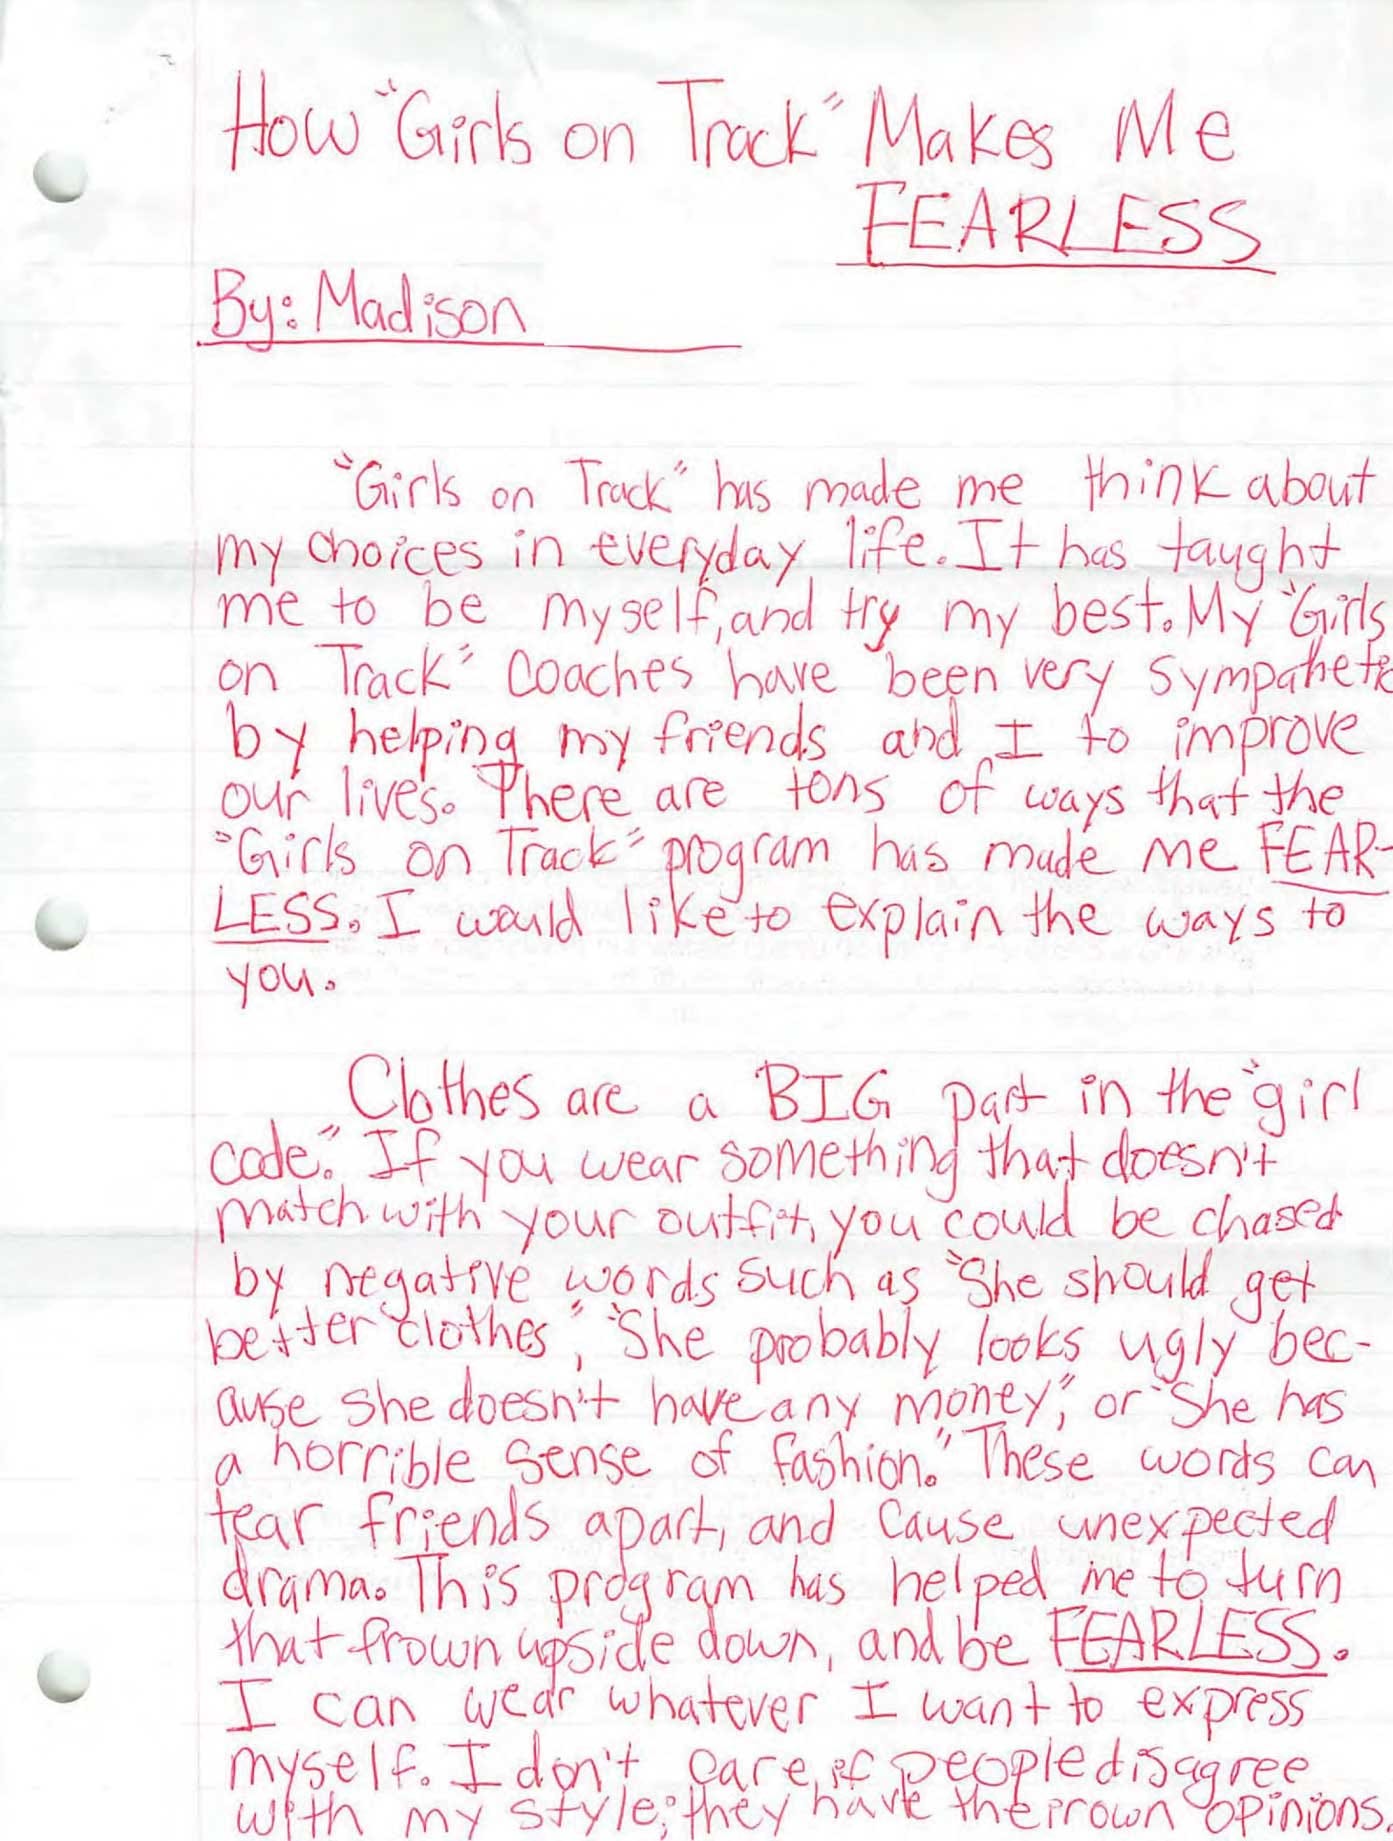 How "Girls on Track" Makes Me
FEARLESS
By: Madison
"Girls on Track" has made me think about
my choices in everyday life. It has taught
me to be myself, and try my best. My "Girls
on Track" coaches have been very sympahetic
by helping my friends and I to improve
our lives. There are tons of ways that the
"Girls on Track" program has made me FEAR-
LESS. I would like to explain the ways to
you.
Clothes are a BIG part in the "girl
code." If you wear something that doesn't
match with your outfit, you could be chased
by negative words such as "She should get
better clothes", "She probably looks ugly bec-
ause she doesn't have any money", or "She has
a horrible sense of fashion." These words can
tear friends apart, and cause unexpected
drama. This program has helped me to turn
that frown upside down, and be FEARLESS.
I can wear whatever I want to express
myself. I don't care if people disagree
with my style; they have their own opinions.